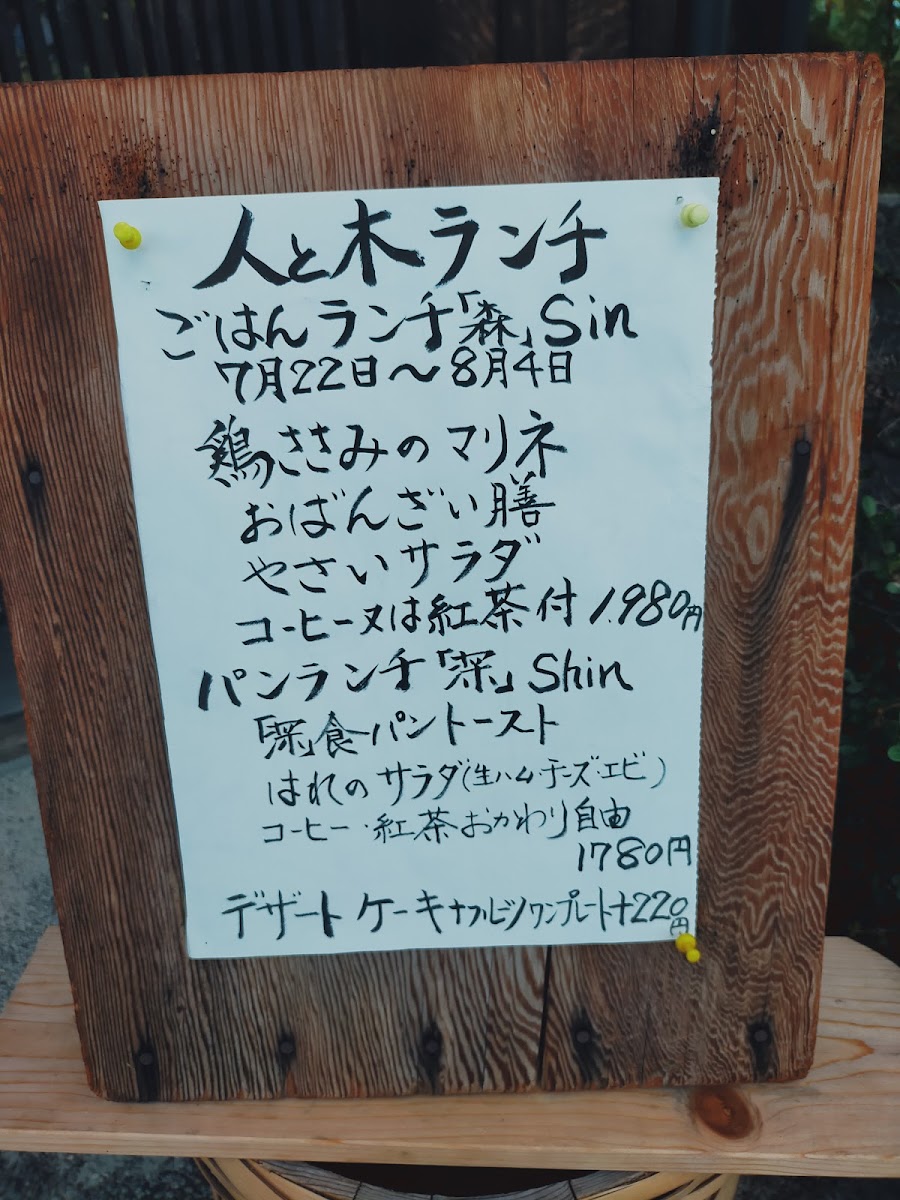 人と木ランチ
ごはんランチ「森」Sin
7月22日〜8月4日
鶏ささみのマリネ
おばんざい膳
やさいサラダ
コーヒー又は紅茶付 1.980円
パンランチ「深」Shin
「深」食パントースト
はれのサラダ(生ハム・チーズ・エビ)
コーヒー・紅茶おかわり自由
1780円
デザート ケーキ+フルーツワンプレート+220円